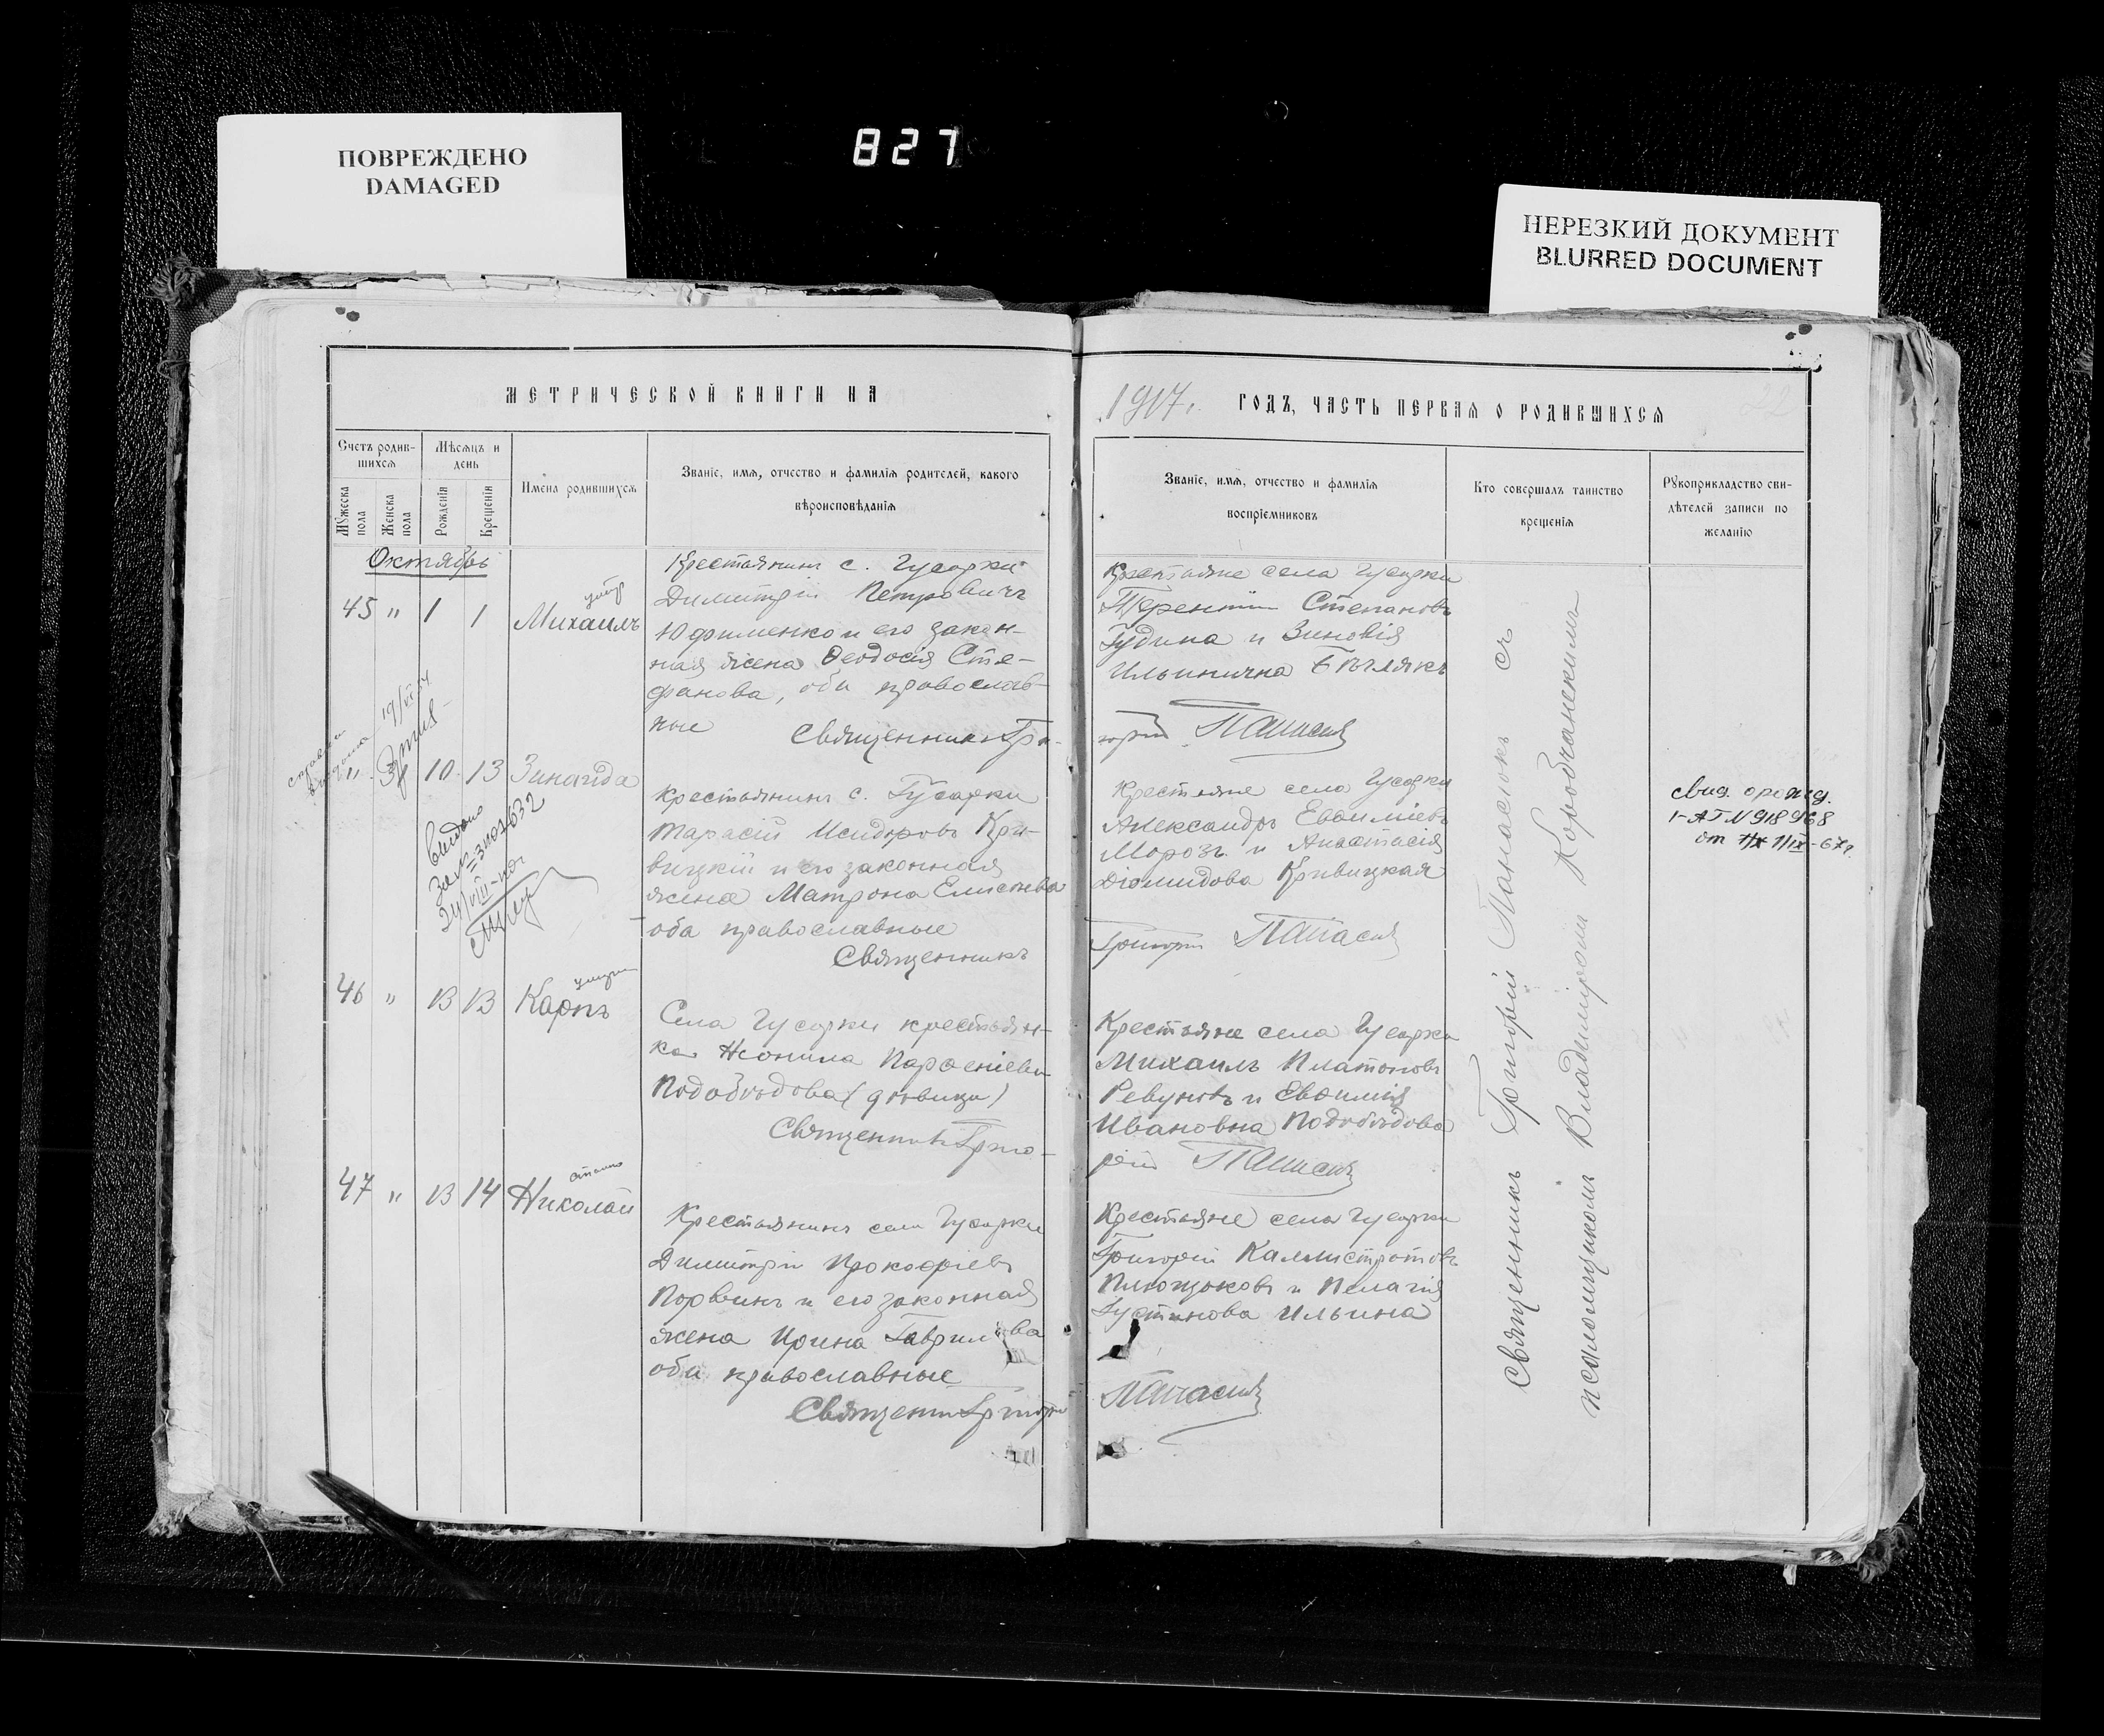 ПОВРЕЖДЕНО
DAMAGED
827
НЕРЕЗКИЙ ДОКУМЕНТ
BLURRED DOCUMENT
МЕТРИЧЕСКОЙ КНИГИ НА
1917 г. ГОДЪ, ЧАСТЬ ПЕРВАЯ О РОДИВШИХСЯ
Счетъ родив-
шихся
Мѣсяцъ и
день
Мужеска
пола
Женска
пола
Рожденія
Крещенія
Имена родившихся
Званіе, имя, отчество и фамилія родителей, какого
вѣроисповѣданія
Званіе, имя, отчество и фамилія
воспріемниковъ
Кто совершалъ таинство
крещенія
Рукоприкладство сви-
дѣтелей записи по
желанію
Октябрь
45 " 1 1 Михаилъ
Крестьянинъ с. Гусарки
Димитрій Петровичъ
Юфименко и его закон-
ная жена Ѳеодосія Сте-
фанова, оба православ-
ные
Священникъ Гри-
Крестьяне села Гусарки
Терентій Степановъ
Гудина и Зиновія
Ильинична Бѣлякъ
горій Панасюкъ
" 10 13 Зинаида
выдано
Крестьянинъ с. Гусарки
Тарасій Исидоровъ Кри-
вицкій и его законная
жена Матрона Елисѣева
оба православные
Священникъ
Крестьяне села Гусарки
Александръ Евѳиміевъ
Морозъ и Анастасія
Діомидова Кривицкая
Григорій Панасюкъ
свид. о рожд.
I-АП N 918968
46 " 13 13 Карпъ
Села Гусарки крестьян-
ка Неонила Парѳеніева
Подобѣдова (дѣвица)
Священникъ Григо-
Крестьяне села Гусарки
Михаилъ Платоновъ
Ревуновъ и Евѳимія
Ивановна Подобѣдова
рій Панасюкъ
47 " 13 14 Николай
Крестьянинъ села Гусарки
Димитрій Прокофіевъ
и его законная
жена Ирина Гаврилова
оба православные
Священникъ Григорій
Крестьяне села Гусарки
Григорій Каллистратовъ
и Пелагія
Густинова Ильина
Панасюкъ
Священникъ Григорій Панасюкъ съ
псаломщикомъ Владиміромъ Коробчанскимъ